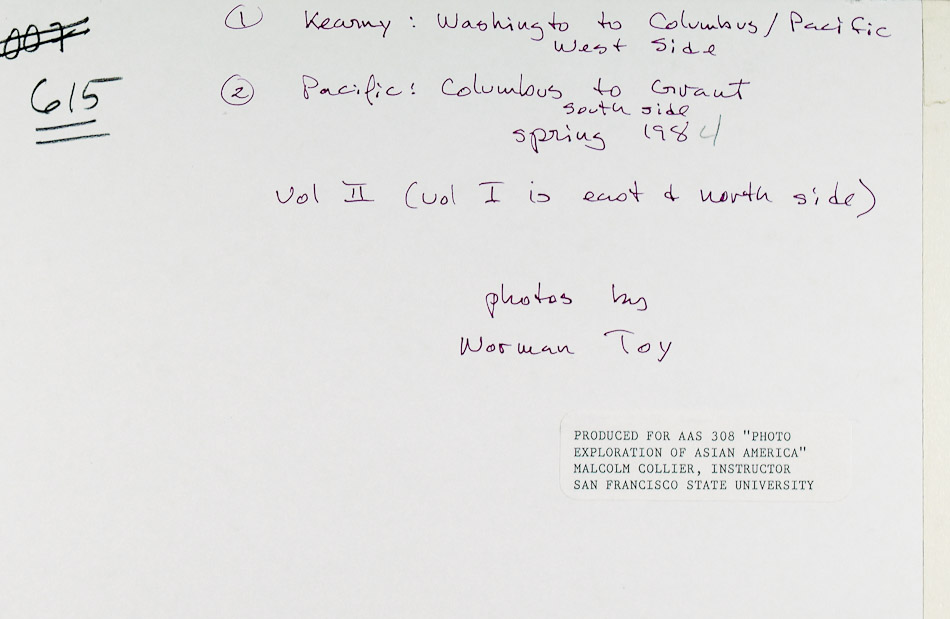 007
615
① Kearny: Washingto to Columbus/Pacific
West Side
② Pacific: Columbus to Grant
south side
spring 1984
Vol II (vol I is east & north side)
photos by
Norman Toy
PRODUCED FOR AAS 308 "PHOTO
EXPLORATION OF ASIAN AMERICA"
MALCOLM COLLIER, INSTRUCTOR
SAN FRANCISCO STATE UNIVERSITY